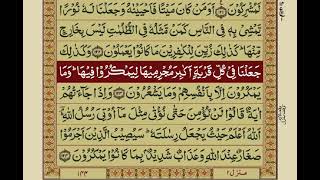 لَمُشْرِكُوْنَ ﴿١٢١﴾ اَوَمَنْ كَانَ مَيْتًا فَاَحْيَيْنٰهُ وَجَعَلْنَا لَهٗ نُوْرًا
يَّمْشِيْ بِهٖ فِي النَّاسِ كَمَنْ مَّثَلُهٗ فِي الظُّلُمٰتِ لَيْسَ بِخَارِجٍ
مِّنْهَا ؕ كَذٰلِكَ زُيِّنَ لِلْكٰفِرِيْنَ مَا كَانُوْا يَعْمَلُوْنَ ﴿١٢٢﴾ وَكَذٰلِكَ
جَعَلْنَا فِيْ كُلِّ قَرْيَةٍ اَكٰبِرَ مُجْرِمِيْهَا لِيَمْكُرُوْا فِيْهَا ؕ وَمَا
يَمْكُرُوْنَ اِلَّا بِاَنْفُسِهِمْ وَمَا يَشْعُرُوْنَ ﴿١٢٣﴾ وَاِذَا جَآءَتْهُمْ
اٰيَةٌ قَالُوْا لَنْ نُّؤْمِنَ حَتّٰى نُؤْتٰى مِثْلَ مَآ اُوْتِيَ رُسُلُ اللّٰهِ
اَللّٰهُ اَعْلَمُ حَيْثُ يَجْعَلُ رِسَالَتَهٗ ؕ سَيُصِيْبُ الَّذِيْنَ اَجْرَمُوْا
صَغَارٌ عِنْدَ اللّٰهِ وَعَذَابٌ شَدِيْدٌۢ بِمَا كَانُوْا يَمْكُرُوْنَ ﴿١٢٤﴾
منزل ٢
١٤٣